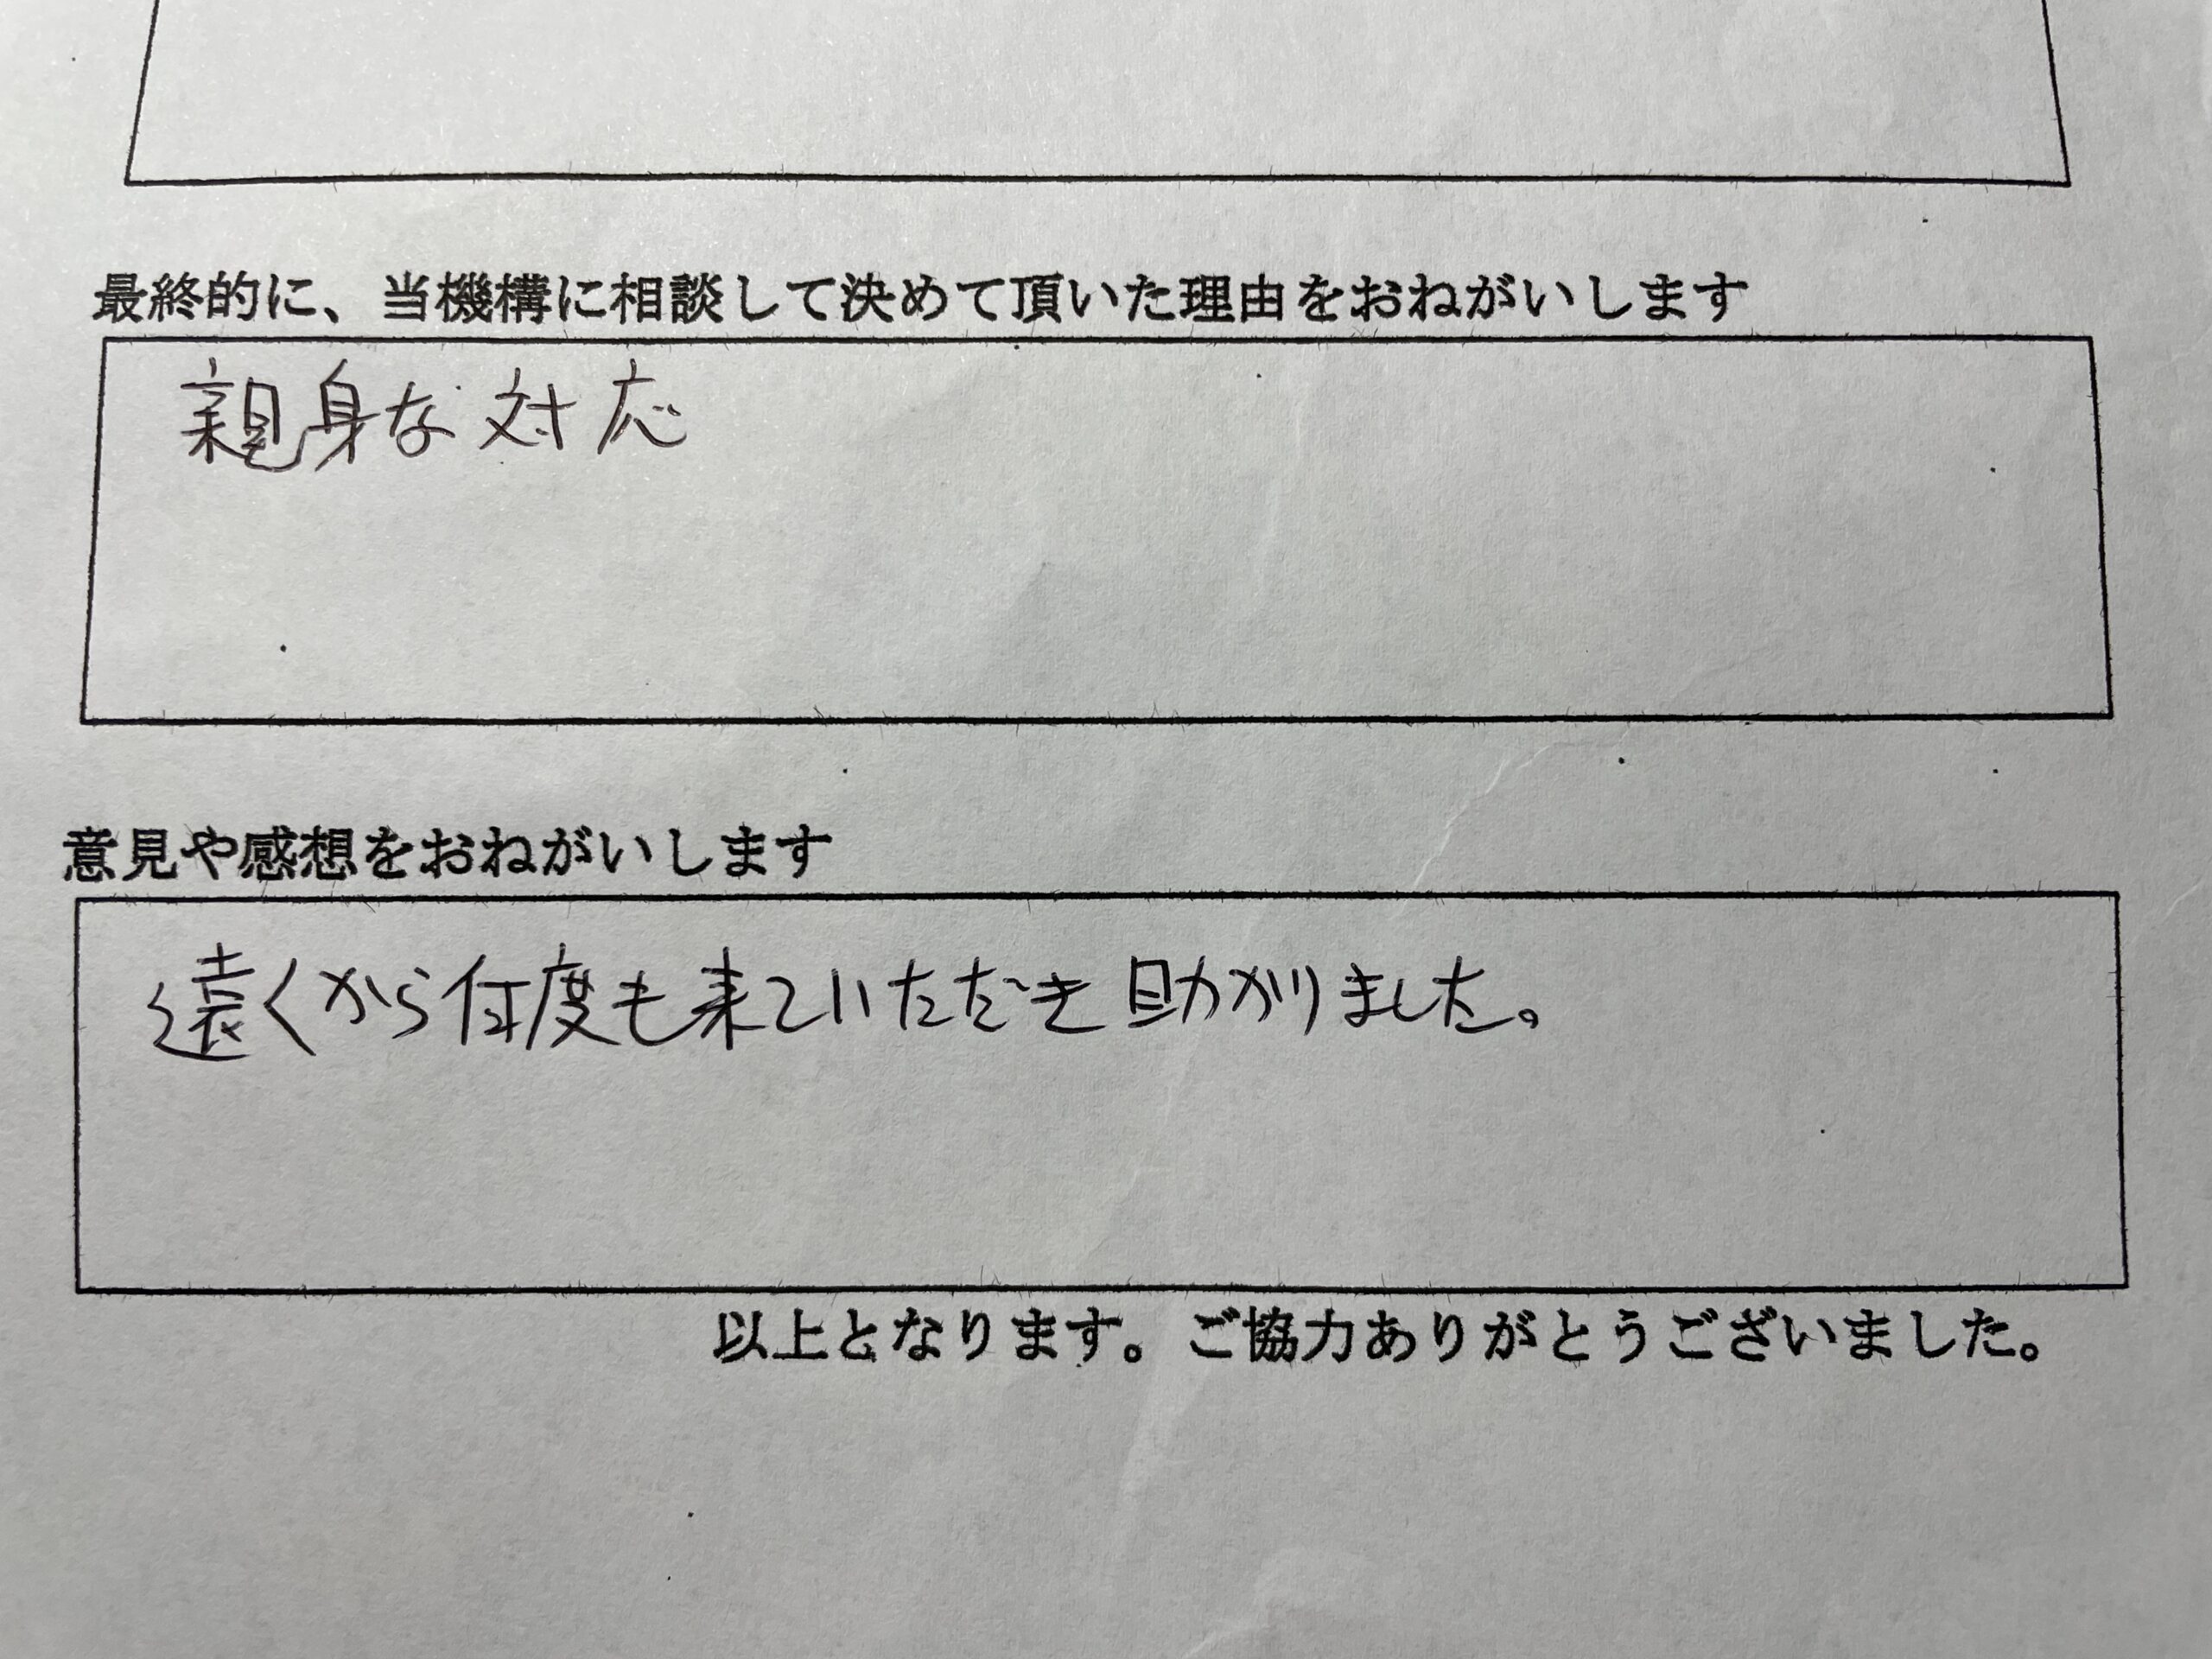 最終的に、当機構に相談して決めて頂いた理由をおねがいします
親身な対応
意見や感想をおねがいします
遠くから何度も来ていただき助かりました。
以上となります。ご協力ありがとうございました。